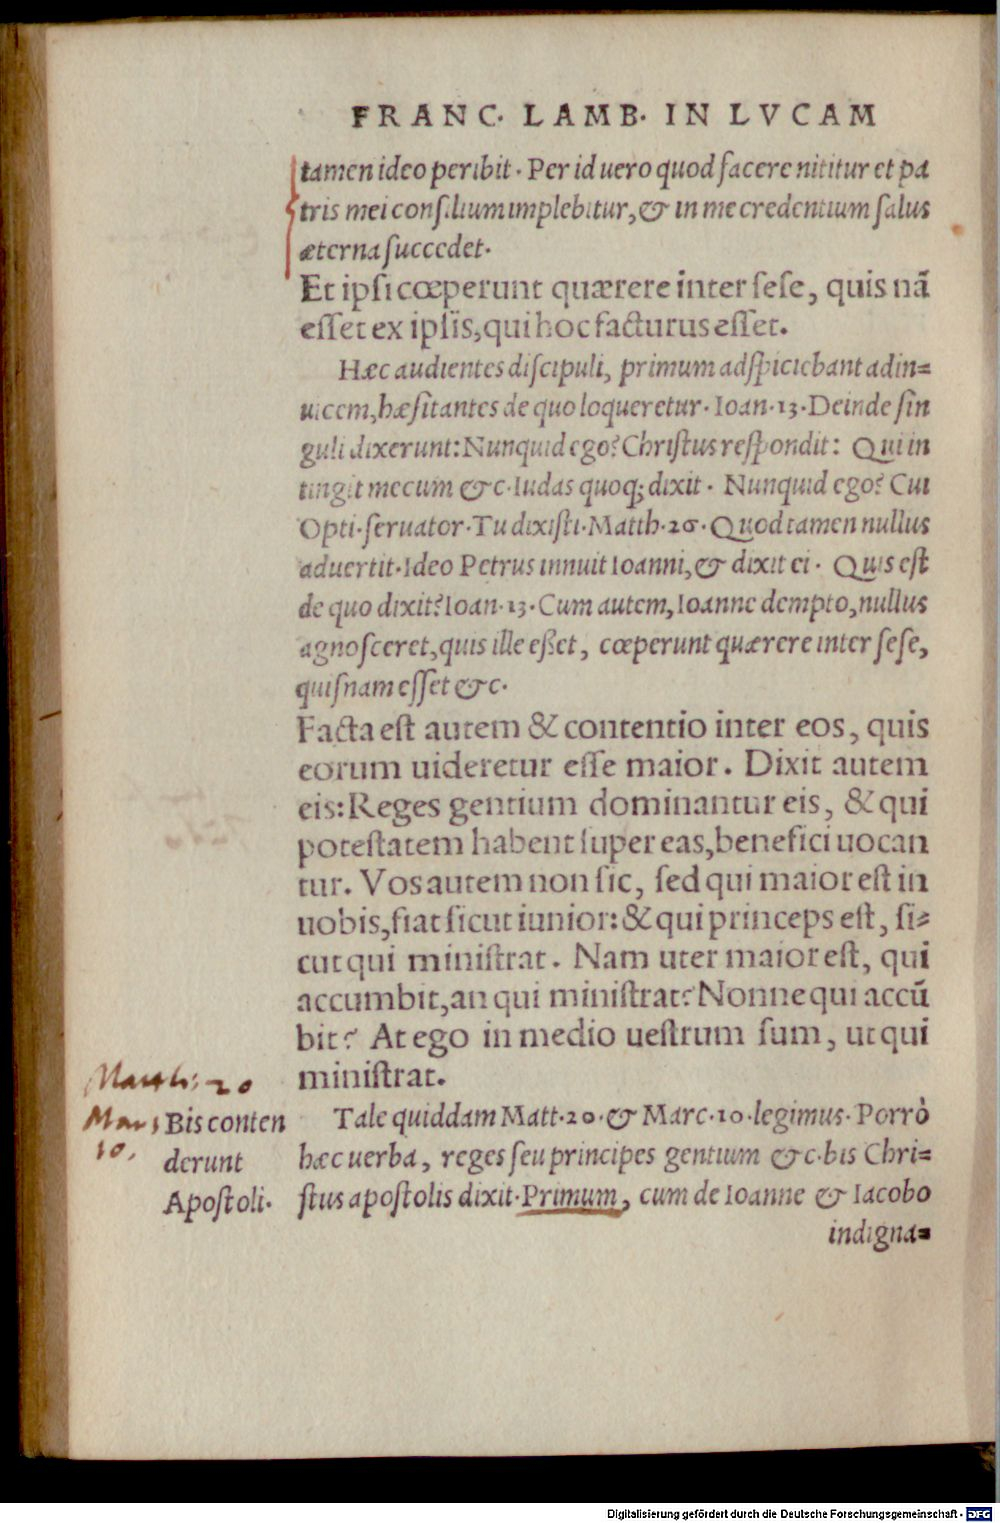 FRANC. LAMB. IN LVCAM
tamen ideo peribit. Per id uero quod facere nititur et pa
tris mei consilium implebitur, & in me credentium salus
æterna succedet.
Et ipsi cœperunt quærere inter sese, quis nã
esset ex ipsis, qui hoc facturus esset.
Hæc audientes discipuli, primum adspiciebant adin=
uicem, hæsitantes de quo loqueretur. Ioan. 13. Deinde sin
guli dixerunt: Nunquid ego? Christus respondit: Qui in
tingit mecum &c. Iudas quoq; dixit. Nunquid ego? Cui
Opti. seruator. Tu dixisti. Matth. 26. Quod tamen nullus
aduertit. Ideo Petrus innuit Ioanni, & dixit ei. Quis est
de quo dixit? Ioan. 13. Cum autem, Ioanne dempto, nullus
agnosceret, quis ille eßet, cœperunt quærere inter sese,
quisnam esset &c.
Facta est autem & contentio inter eos, quis
eorum uideretur esse maior. Dixit autem
eis: Reges gentium dominantur eis, & qui
potestatem habent super eas, benefici uocan
tur. Vos autem non sic, sed qui maior est in
uobis, fiat sicut iunior: & qui princeps est, si=
cut qui ministrat. Nam uter maior est, qui
accumbit, an qui ministrat? Nonne qui accũ
bit? At ego in medio uestrum sum, ut qui
ministrat.
Matth: 20
Marc
10.
Bis conten
derunt
Apostoli.
Tale quiddam Matt. 20. & Marc. 10. legimus. Porrò
hæc uerba, reges seu principes gentium &c. bis Chri=
stus apostolis dixit. Primum, cum de Ioanne & Iacobo
indigna=
Digitalisierung gefördert durch die Deutsche Forschungsgemeinschaft - DFG